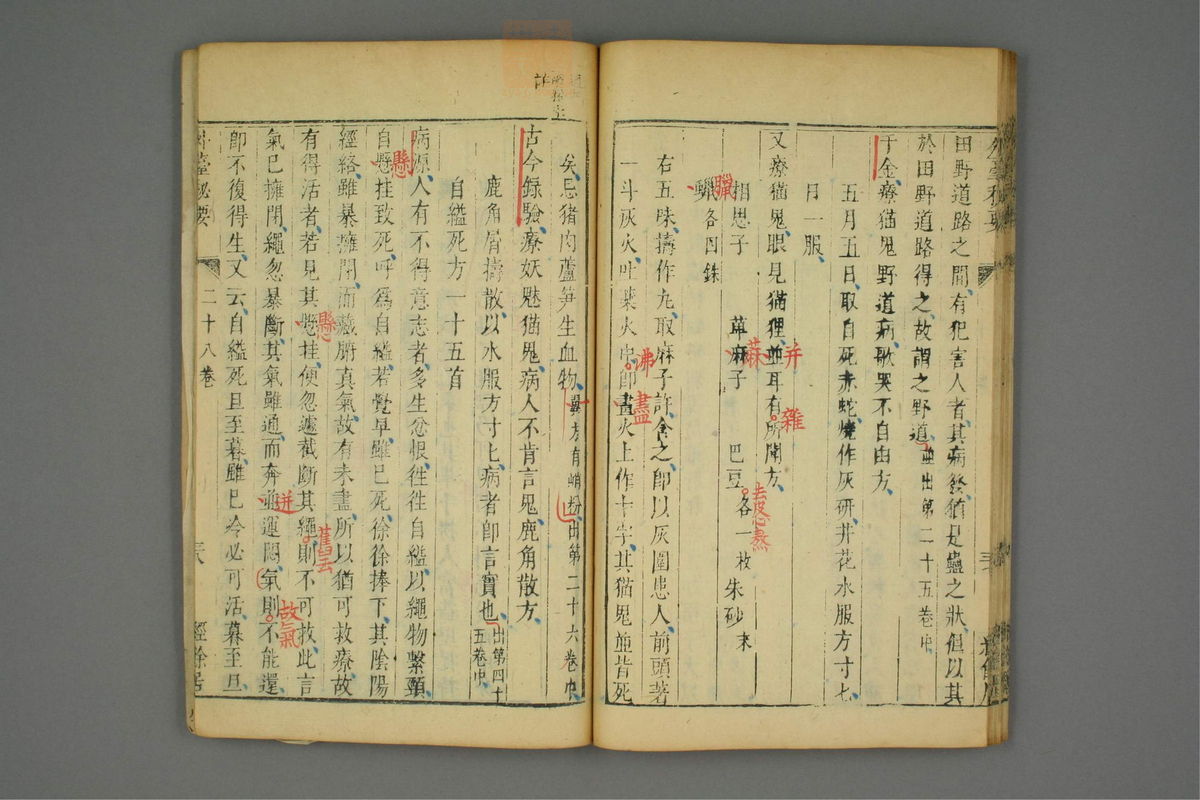 田野道路之間有犯害人者其病發猶是蠱之狀但以其
於田野道路得之故謂之野道並出第二十五卷中
千金療猫鬼野道病歌哭不自由方
五月五日取自死赤蛇燒作灰研井花水服方寸匕
月一服
又療猫鬼眼見猫狸並耳有所聞方
并
雜
相思子 萆麻子 巴豆各一枚 朱砂末
蔴
去皮心熬
蠟各四銖
臘
右五味擣作丸取麻子許含之卽以灰圍患人前頭著
一斗灰火吐藥火中卽畫火上作十字其猫鬼並皆死
沸
盡
矣忌猪肉蘆笋生血物翼方有蛸粉出第二十六卷中
古今錄驗療妖魅猫鬼病人不肯言鬼鹿角散方
鹿角屑擣散以水服方寸匕病者卽言實也出第四十五卷中
自縊死方一十五首
病源人有不得意志者多生忿恨往往自縊以繩物繫頸
自懸挂致死呼爲自縊若覺早雖已死徐徐捧下其陰陽
懸
經絡雖暴擁閉而藏腑真氣故有未盡所以猶可救療故
有得活者若見其懸挂便忽遽截斷其繩則不可救此言
懸
舊云
氣已擁閉繩忽暴斷其氣雖通而奔並運悶氣則不能還
迸
故氣
卽不復得生又云自縊死旦至暮雖已冷必可活暮至旦
外臺秘要
二十八卷
經餘居